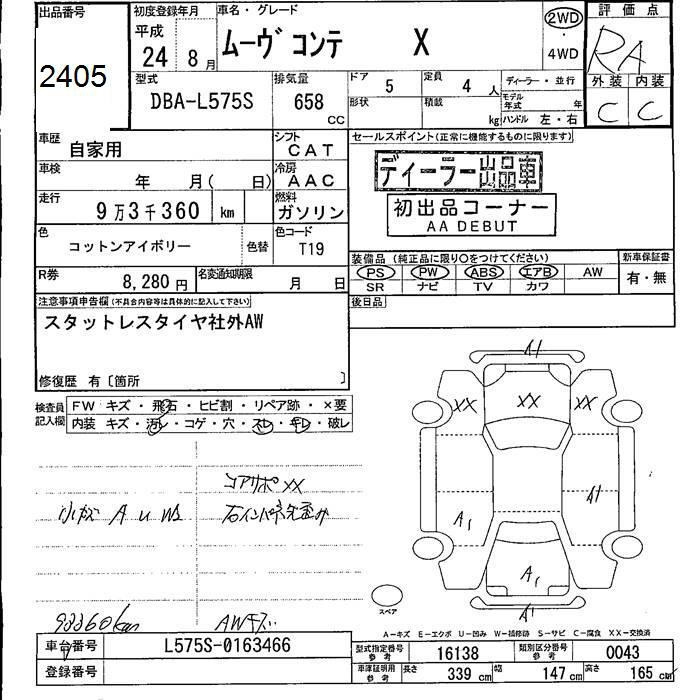 出品番号
2405
初度登録年月
平成
24年 8月
車名・グレード
ムーヴ コンテ X
2WD
・
4WD
評価点
RA
外装 内装
C C
型式
DBA-L575S
排気量
658
CC
ドア
5
定員
4人
形状
積載
kg
ディーラー・並行
モデル年式 年
ハンドル 左・右
車歴
自家用
シフト
CAT
車検
年 月( 日)
冷房
AAC
走行
9万3千360 km
燃料
ガソリン
色
コットンアイボリー
色替
色コード
T19
R券
8,280円
名変通知期限
月 日
セールスポイント(正常に機能するものに限ります)
ディーラー出品車
初出品コーナー
AA DEBUT
装備品(純正品に限り○をつけてください)
新車保証書
PS PW ABS エアB AW
有・無
SR ナビ TV カワ
後日品
注意事項申告欄(不具合内容等は具体的に記入して下さい)
スタットレスタイヤ社外AW
修復歴 有〔箇所 〕
検査員
記入欄
FW キズ・飛石・ヒビ割・リペア跡・×要
内装 キズ・汚レ・コゲ・穴・スレ・キレ・破レ
コアサポXX
小キズ A U W
93360km
AWキズ
A1
XX XX XX
A1
A1
A1
A1
スペア
A-キズ E-エクボ U-凹み W-補修跡 S-サビ C-腐食 XX-交換済
車台番号
L575S-0163466
登録番号
型式指定番号
参考
16138
類別区分番号
参考
0043
車庫証明用
参考
長さ
339 cm
幅
147 cm
高さ
165 cm